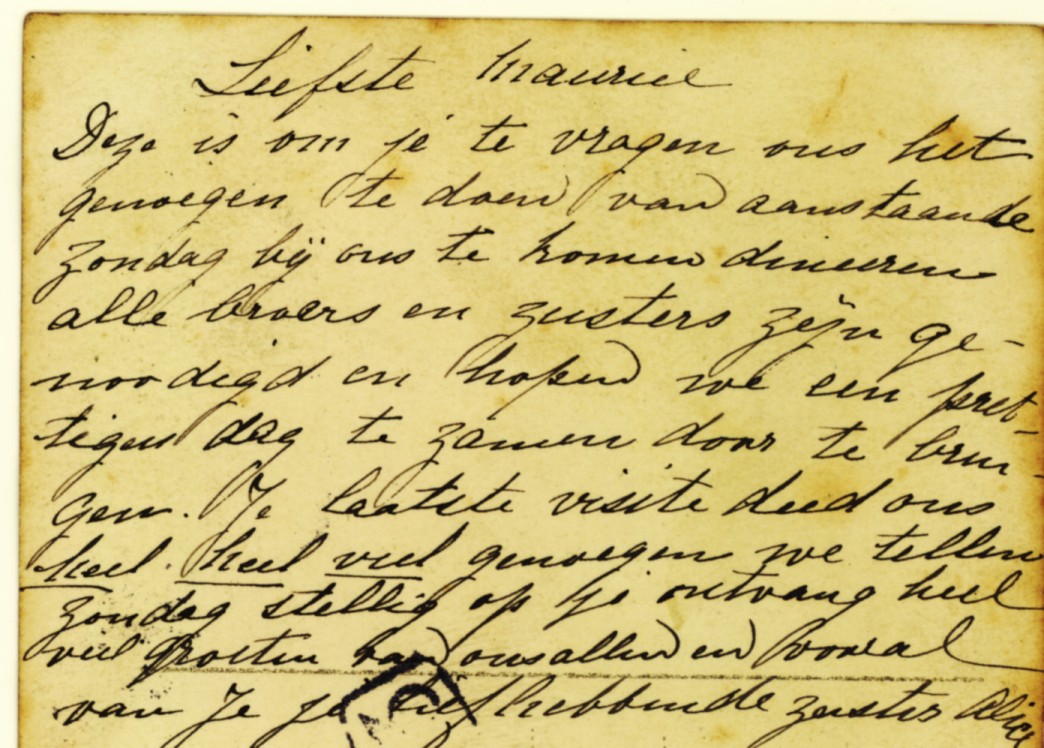 Liefste Maurice
Deze is om je te vragen ons het
genoegen te doen van aanstaande
zondag bij ons te komen dineeren
alle broers en zusters zijn ge-
noodigd en hopen we een pret-
tigen dag te zamen door te brin-
gen. Je laatste visite deed ons
heel. heel veel genoegen we tellen
zondag stellig op je ontvang heel
veel groeten van ons allen en vooral
van Je je liefhebbende zuster Alice